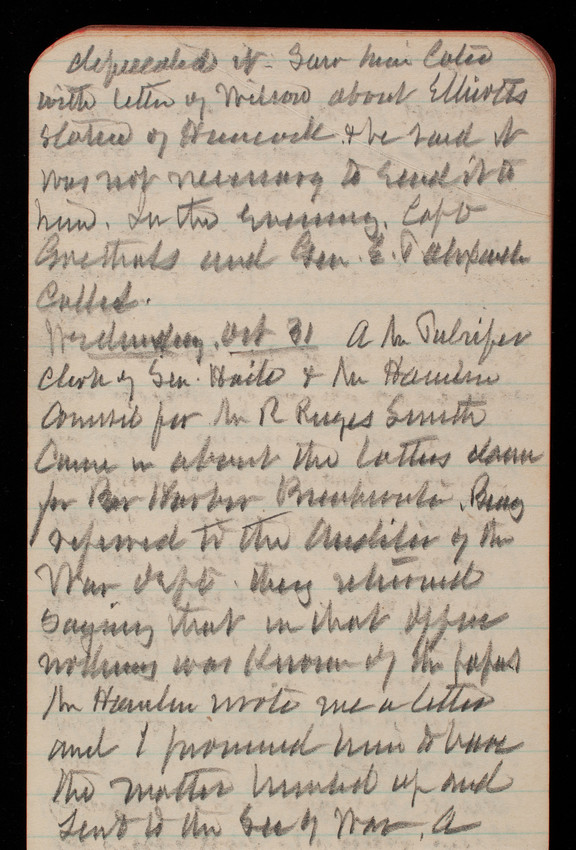 deprecated it. Saw him later
with letter of Wilson about Elliotts
Statue of Hancock & he said it
was not necessary to send it to
him. In the evening, Capt
Goethals and Gen. E.
Called.
Wednesday, Oct 31 A Mr Pulsifer
clerk of Sen. Hale & Mr Hamlin
Council for Mr R Ruges Smith
Came in about the latters claim
for Bar Harbor Breakwater. Being
referred to the Auditor of the
War Dept. they returned
Saying that in that office
nothing was known of the papers
Mr Hamlin wrote me a letter
and I promised him to have
the matter hunted up and
Sent to the Sec of War. A